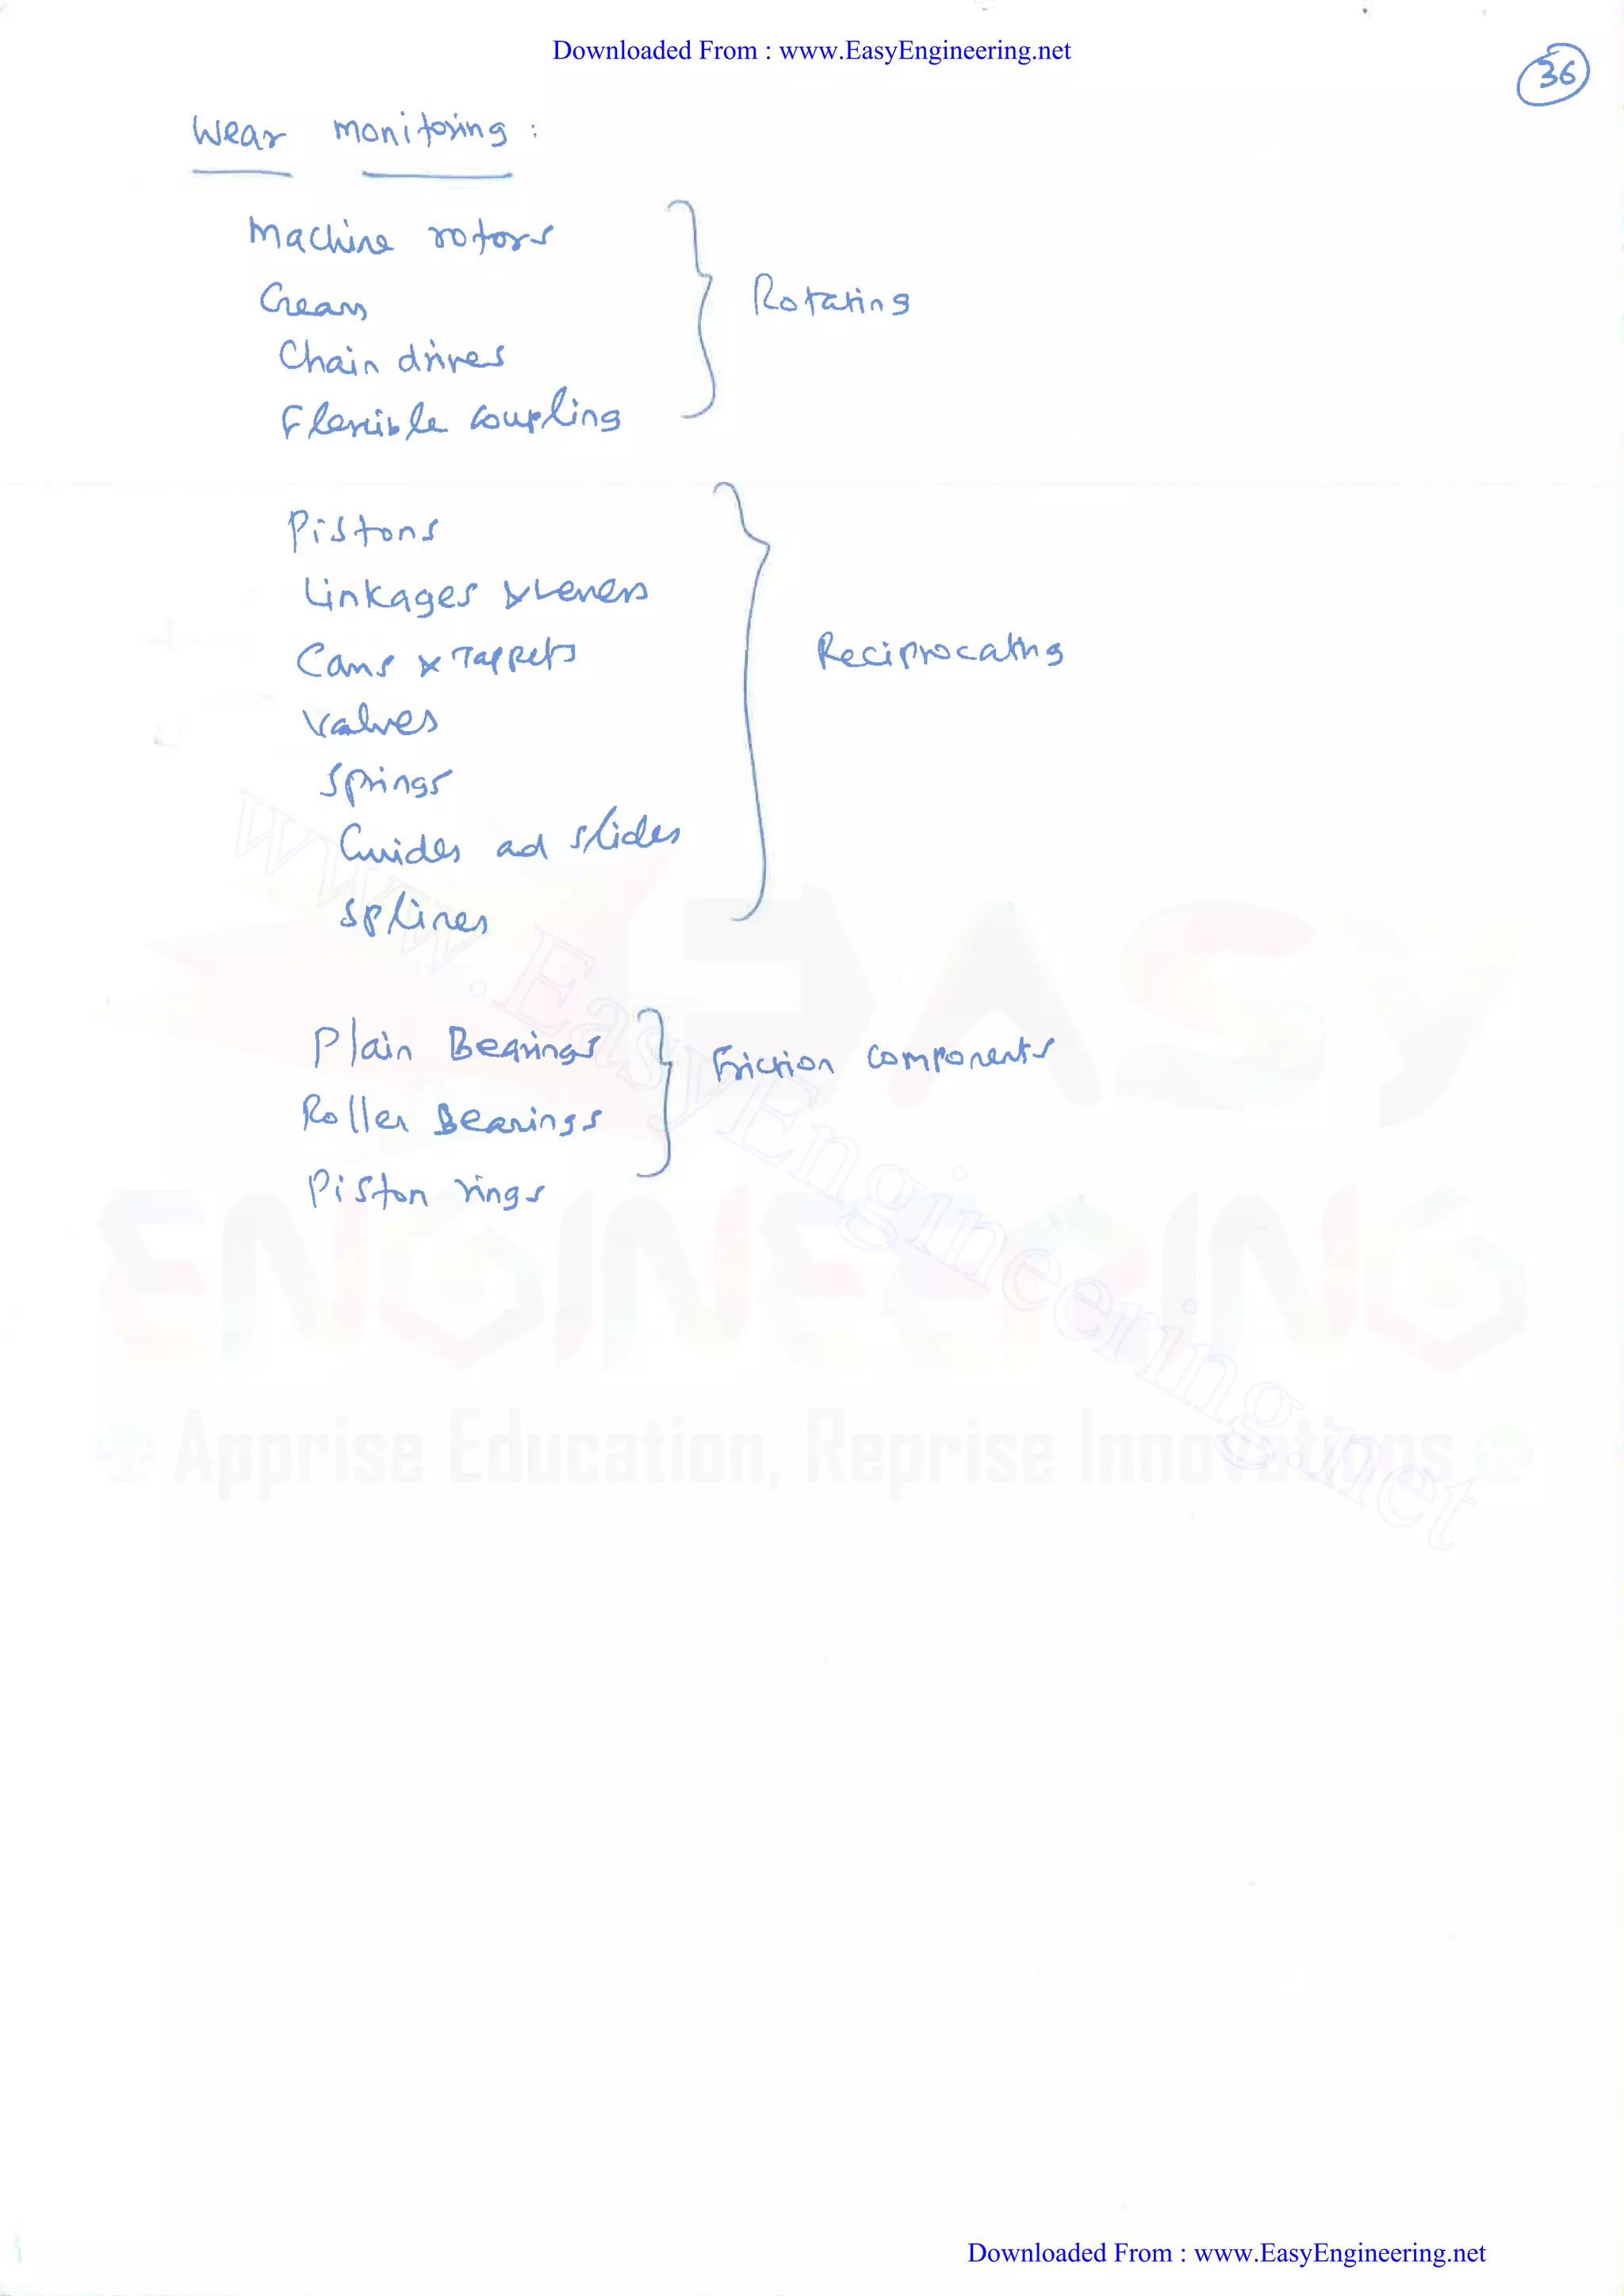 Downloaded From : www.EasyEngineering.net
36
Wear monitoring :
Machine rotors
Gears
Chain drives
Rotating
Flexible Coupling
Pistons
Linkages & Levers
Cams & Tappets
Reciprocating
Valves
Springs
Guides ad slides
Splines
Plain Bearings
Friction Components
Roller Bearings
Piston rings
www.EasyEngineering.net
EASY
ENGINEERING
Apprise Education, Reprise Innovations
Downloaded From : www.EasyEngineering.net